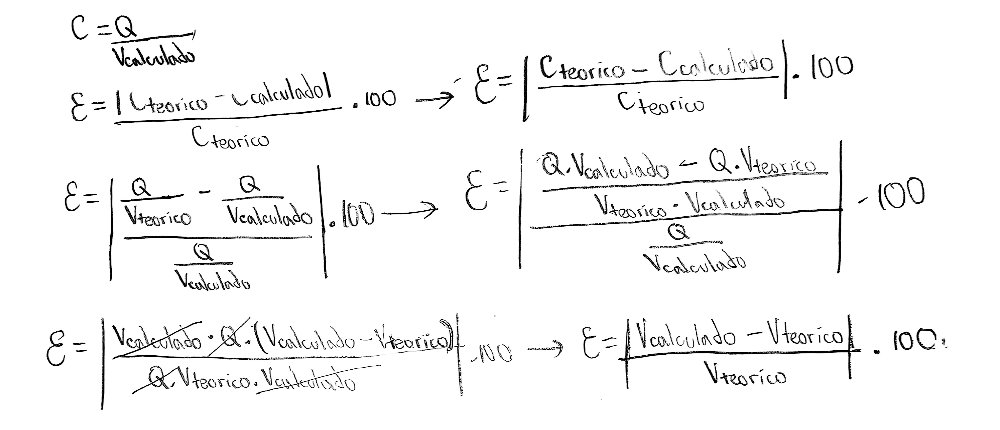 C = Q / Vcalculado
Ɛ = |Cteorico - Ccalculado| / Cteorico . 100 → Ɛ = |(Cteorico - Ccalculado) / Cteorico| . 100
Ɛ = |(Q / Vteorico - Q / Vcalculado) / (Q / Vcalculado)| . 100 → Ɛ = |((Q . Vcalculado - Q . Vteorico) / (Vteorico . Vcalculado)) / (Q / Vcalculado)| . 100
Ɛ = |(Vcalculado . Q . (Vcalculado - Vteorico)) / (Q . Vteorico . Vcalculado)| . 100 → Ɛ = |(Vcalculado - Vteorico) / Vteorico| . 100.